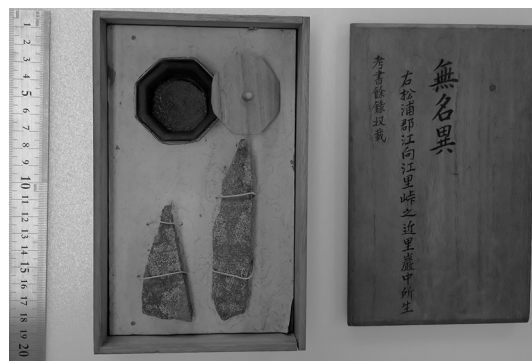 1
2
3
4
5
6
7
8
9
10
11
12
13
14
15
16
17
18
19
20
無名異
右松浦郡江向江里峠之近里巌中所生
考書餘錄扱裁